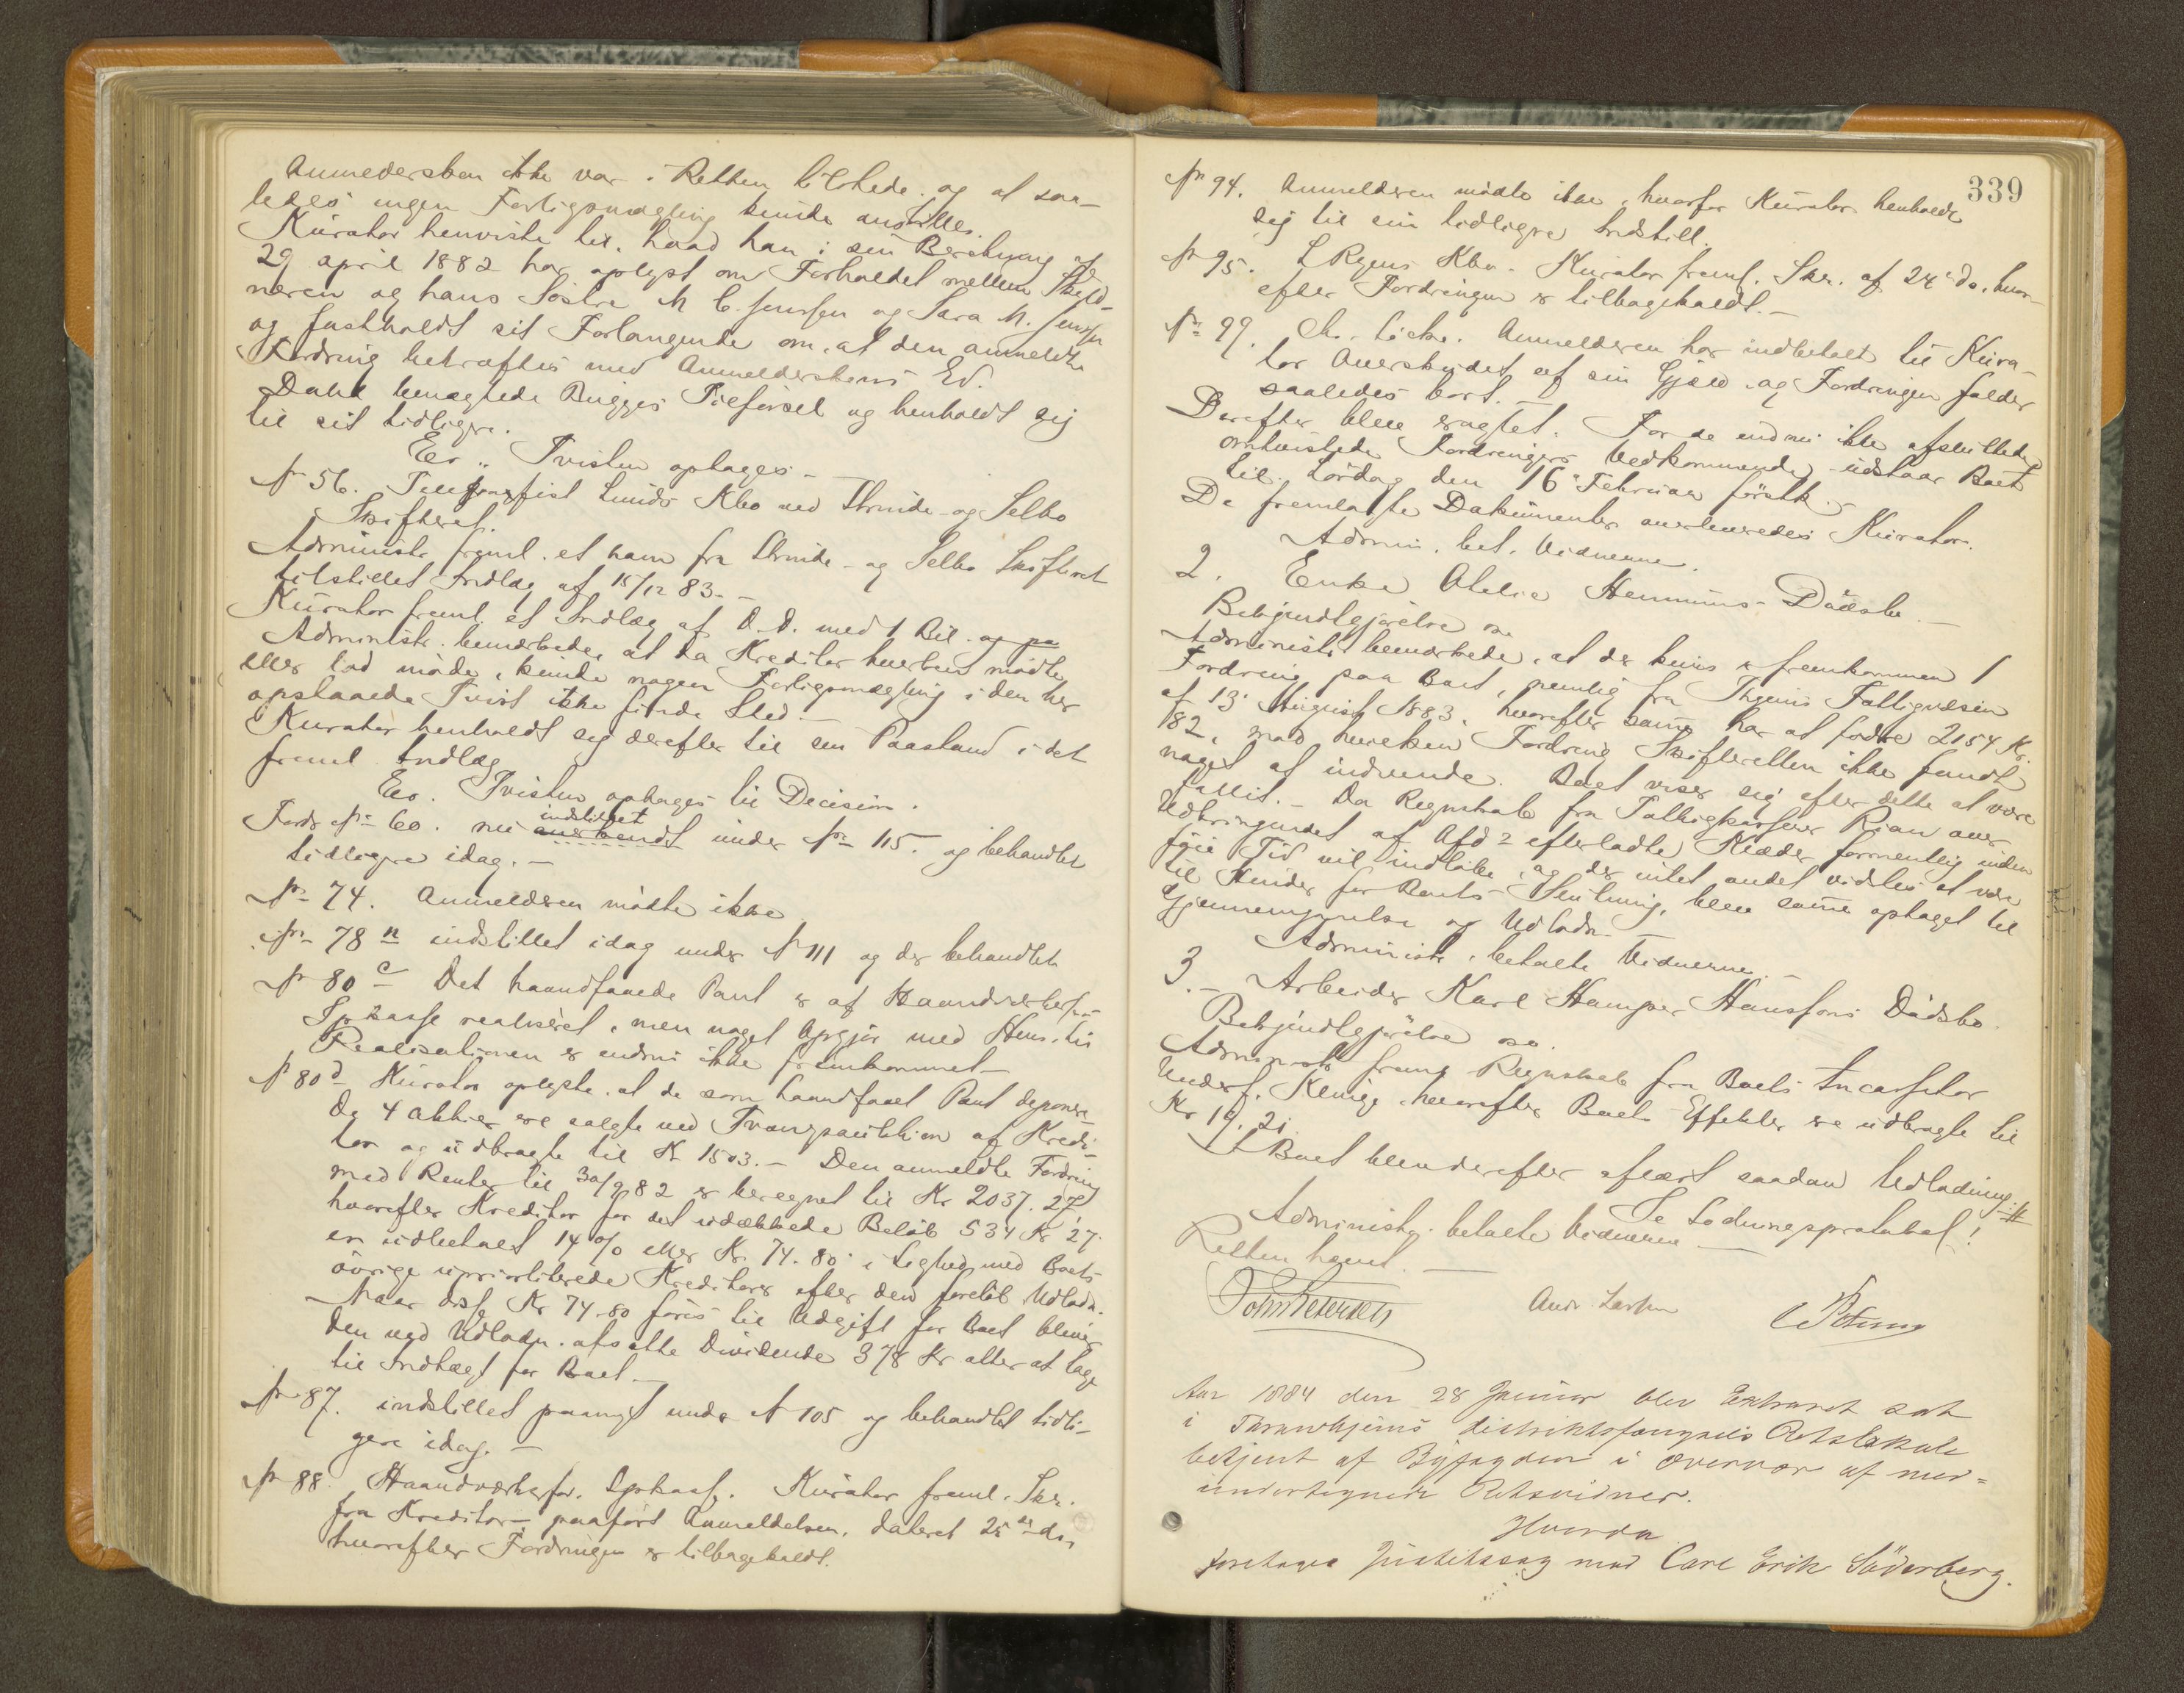 Anmeldersken ikke var i Retten tilstede og at saa-
ledes ingen Forligsmægling kunde anstilles.
Kurator henviste til, hvad han i sin Beretning af
29 april 1882 har oplyst om Forholdet mellem Skyld-
neren og hans Søstre M C. Jenssen og Sara M. Jenssen
og fastholdt sit Forlangende om, at den anmeldte
Fordring bekræftes med Anmelderskens Ed.
Dahl benægtede Brigges Tilførsel og henholdt sig
til sit tidligere.
Er: Tvisten optages -
No 56. Telegrafist Lunds Kbo ved Strinde- og Selbo
Skifteret.
Administr. freml. et ham fra Strinde- og Selbo Skifteret
tilstillet Indlæg af 15/12 83. -
Kurator freml. et Indlæg af D.D. med 1 Bil. og pa
Administr. bemærkede, at da Kreditor hverken mødte
eller lod møde, kunde nogen Forligsmægling i den her
opstaaede Tvist ikke finde Sted. -
Kurator henholdt sig derefter til sin Paastand i det
freml Indlæg
Er. Tvisten optages til Decision.
indstillet
Fordr No 60. nu anerkendt under No 115. og behandlet
tidligere idag. -
No 74. Anmelderen mødte ikke
No 78 n indstillet idag under No 111 og der behandlet
No 80 c Det haandfaaede Pant er af Haandværkerfor
Spkasse realiseret, men noget Opgjør med Hens. til
Realisationen er endnu ikke fremkommet -
No 80 d Kurator oplyste, at de som haandfaaet Pant deponere-
de 4 Aktier ere solgte ved Tvangsauktion af Kredi-
tor og udbragte til Kr 1503. - Den anmeldte Fordring
med Renter til 30/9 82 er beregnet til Kr 2037. 27
hvorefter Kreditor for det udækkede Beløb 534 Kr 27
er udbetalt 14 % eller Kr. 74. 80 i Lighed med Boets
øvrige uprioriterede Kreditorer efter den foreløb Udlodn.
Naar disse Kr 74-80 føres til Udgift for Boet bliver
den ved Udlodn. afsatte Dividende 378 Kr atter at tage
til Indtægt for Boet. -
No 87. indstillet paanyt under No 105 og behandlet tidli-
gere idag. -
No 88. Haandværkerfor. Spkasse. Kurator freml. Skr.
fra Kreditor, paaført Anmeldelsen, dateret 25de ds
hvorefter Fordringen er tilbageholdt.
339
No 94. Anmelderen mødte ikke, hvorfor Kurator henholdt
sig til sin tidligere Indstill.
No 95. L Rygens Kbo. Kurator freml. Skr. af 24de ds. hvor-
efter Fordringen er tilbageholdt. -
No 99. Chr. Anmelderen har indbetalt til Kura-
tor Overskuddet af sin Gjæld, og Fordringen falder
saaledes bort. -
Derefter blev eragtet: For de endnu ikke afsluttede
omtvistede Fordringers Vedkommende udstaar Boet
til Lørdag den 16 Februar førstk. -
De fremlagte Dokumenter overleveredes Kurator.
Admin. bet. Vidnerne.
2. Enke Hemmins Dødsbo. -
Bekjendtgjørelse osv
Administr. bemærkede, at der kuns er fremkommen 1
Fordring paa Boet, nemlig fra Thjems Fattigvæsen
af 13 August 1883, hvorefter samme har at fordre 2154 Kr.
182, mod hvilken Fordring Skifteretten ikke fandt
noget at indvende. Boet viser sig efter dette at være
fallit. - Da Regnskab fra Fattigkasserer Rian over
Udbringendet af Afd's efterladte Klæder formentlig inden
føie Tid vil indløbe, og der intet andet vidstes at være
til Hinder for Boets Slutning, blev samme optaget til
Gjennemgjørelse og Udlodn. -
Administr. betalte Vidnerne. -
3. - Arbeider Karl Hansfons Dødsbo.
Bekjendtgjørelse osv.
Administr. freml Regnskab fra Boets Incassator
Underf. Klingen, hvorefter Boets Effekter ere udbragte til
Kr 19. 21.
Boet blev derefter afsluttet saadan Udlodning: #
Se Lodningsprotokol!
Administr. betalte Vidnerne -
Retten hævet. -
John Petersen
Andr. Larsen
Aar 1884 den 28 Januar blev Extraret sat
i Throndhjems Distriktsfængsels Retslokale
betjent af Byfogden i Overvær af med-
undertegnede Retsvidner.
Hvorda
foretoges Justitssag mod Carl Erik Söderberg.